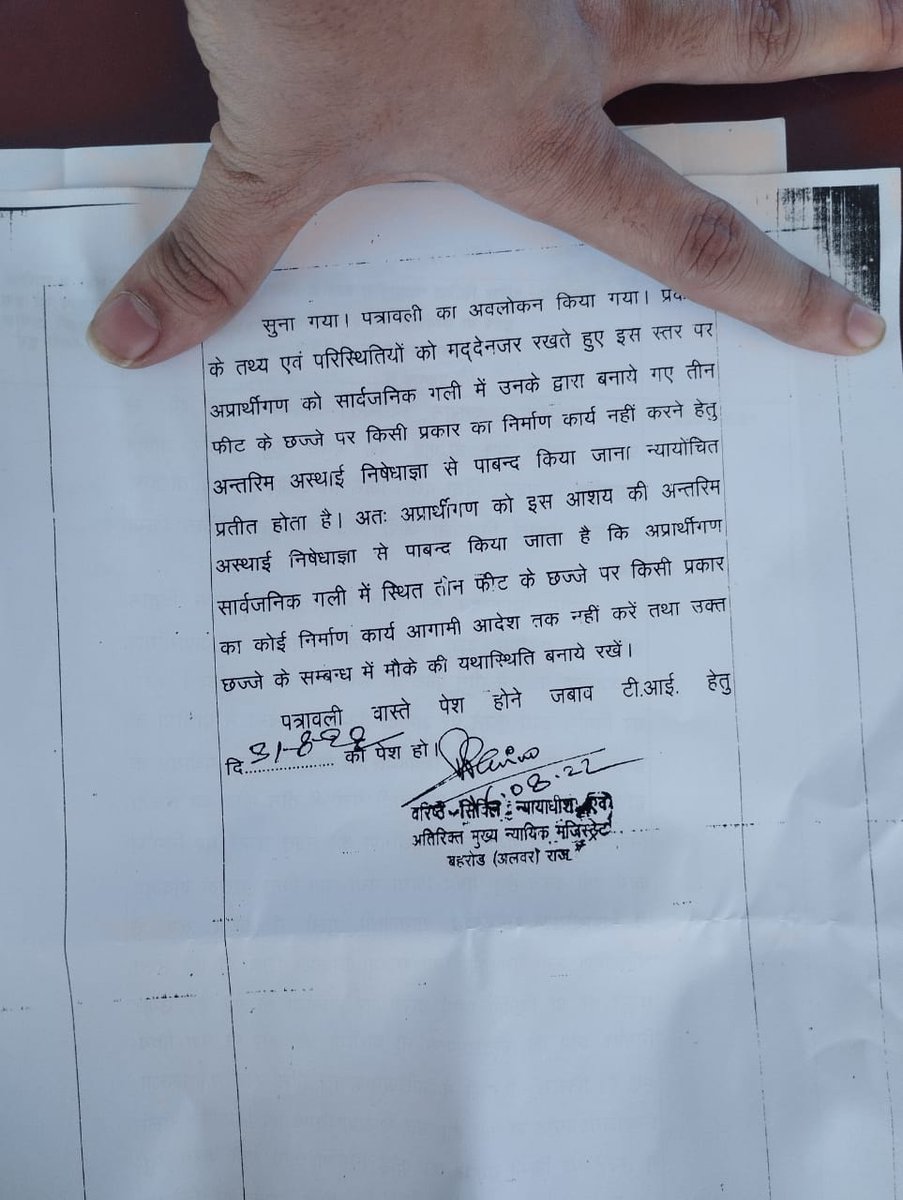 सुना गया। पत्रावली का अवलोकन किया गया।
के तथ्य एवं परिस्थितियों को मद्देनजर रखते हुए इस स्तर पर
अप्रार्थीगण को सार्वजनिक गली में उनके द्वारा बनाये गए तीन
फीट के छज्जे पर किसी प्रकार का निर्माण कार्य नहीं करने हेतु
अन्तरिम अस्थाई निषेधाज्ञा से पाबन्द किया जाना न्यायोचित
प्रतीत होता है। अतः अप्रार्थीगण को इस आशय की अन्तरिम
अस्थाई निषेधाज्ञा से पाबन्द किया जाता है कि अप्रार्थीगण
सार्वजनिक गली में स्थित तीन फीट के छज्जे पर किसी प्रकार
का कोई निर्माण कार्य आगामी आदेश तक नहीं करें तथा उक्त
छज्जे के सम्बन्ध में मौके की यथास्थिति बनाये रखें।
पत्रावली वास्ते पेश होने जबाव टी.आई. हेतु
दि 31-8-22 को पेश हो।
08.22
वरिष्ठ सिविल न्यायाधीश एवं
अतिरिक्त मुख्य न्यायिक मजिस्ट्रेट
बहरोड (अलवर) राज.